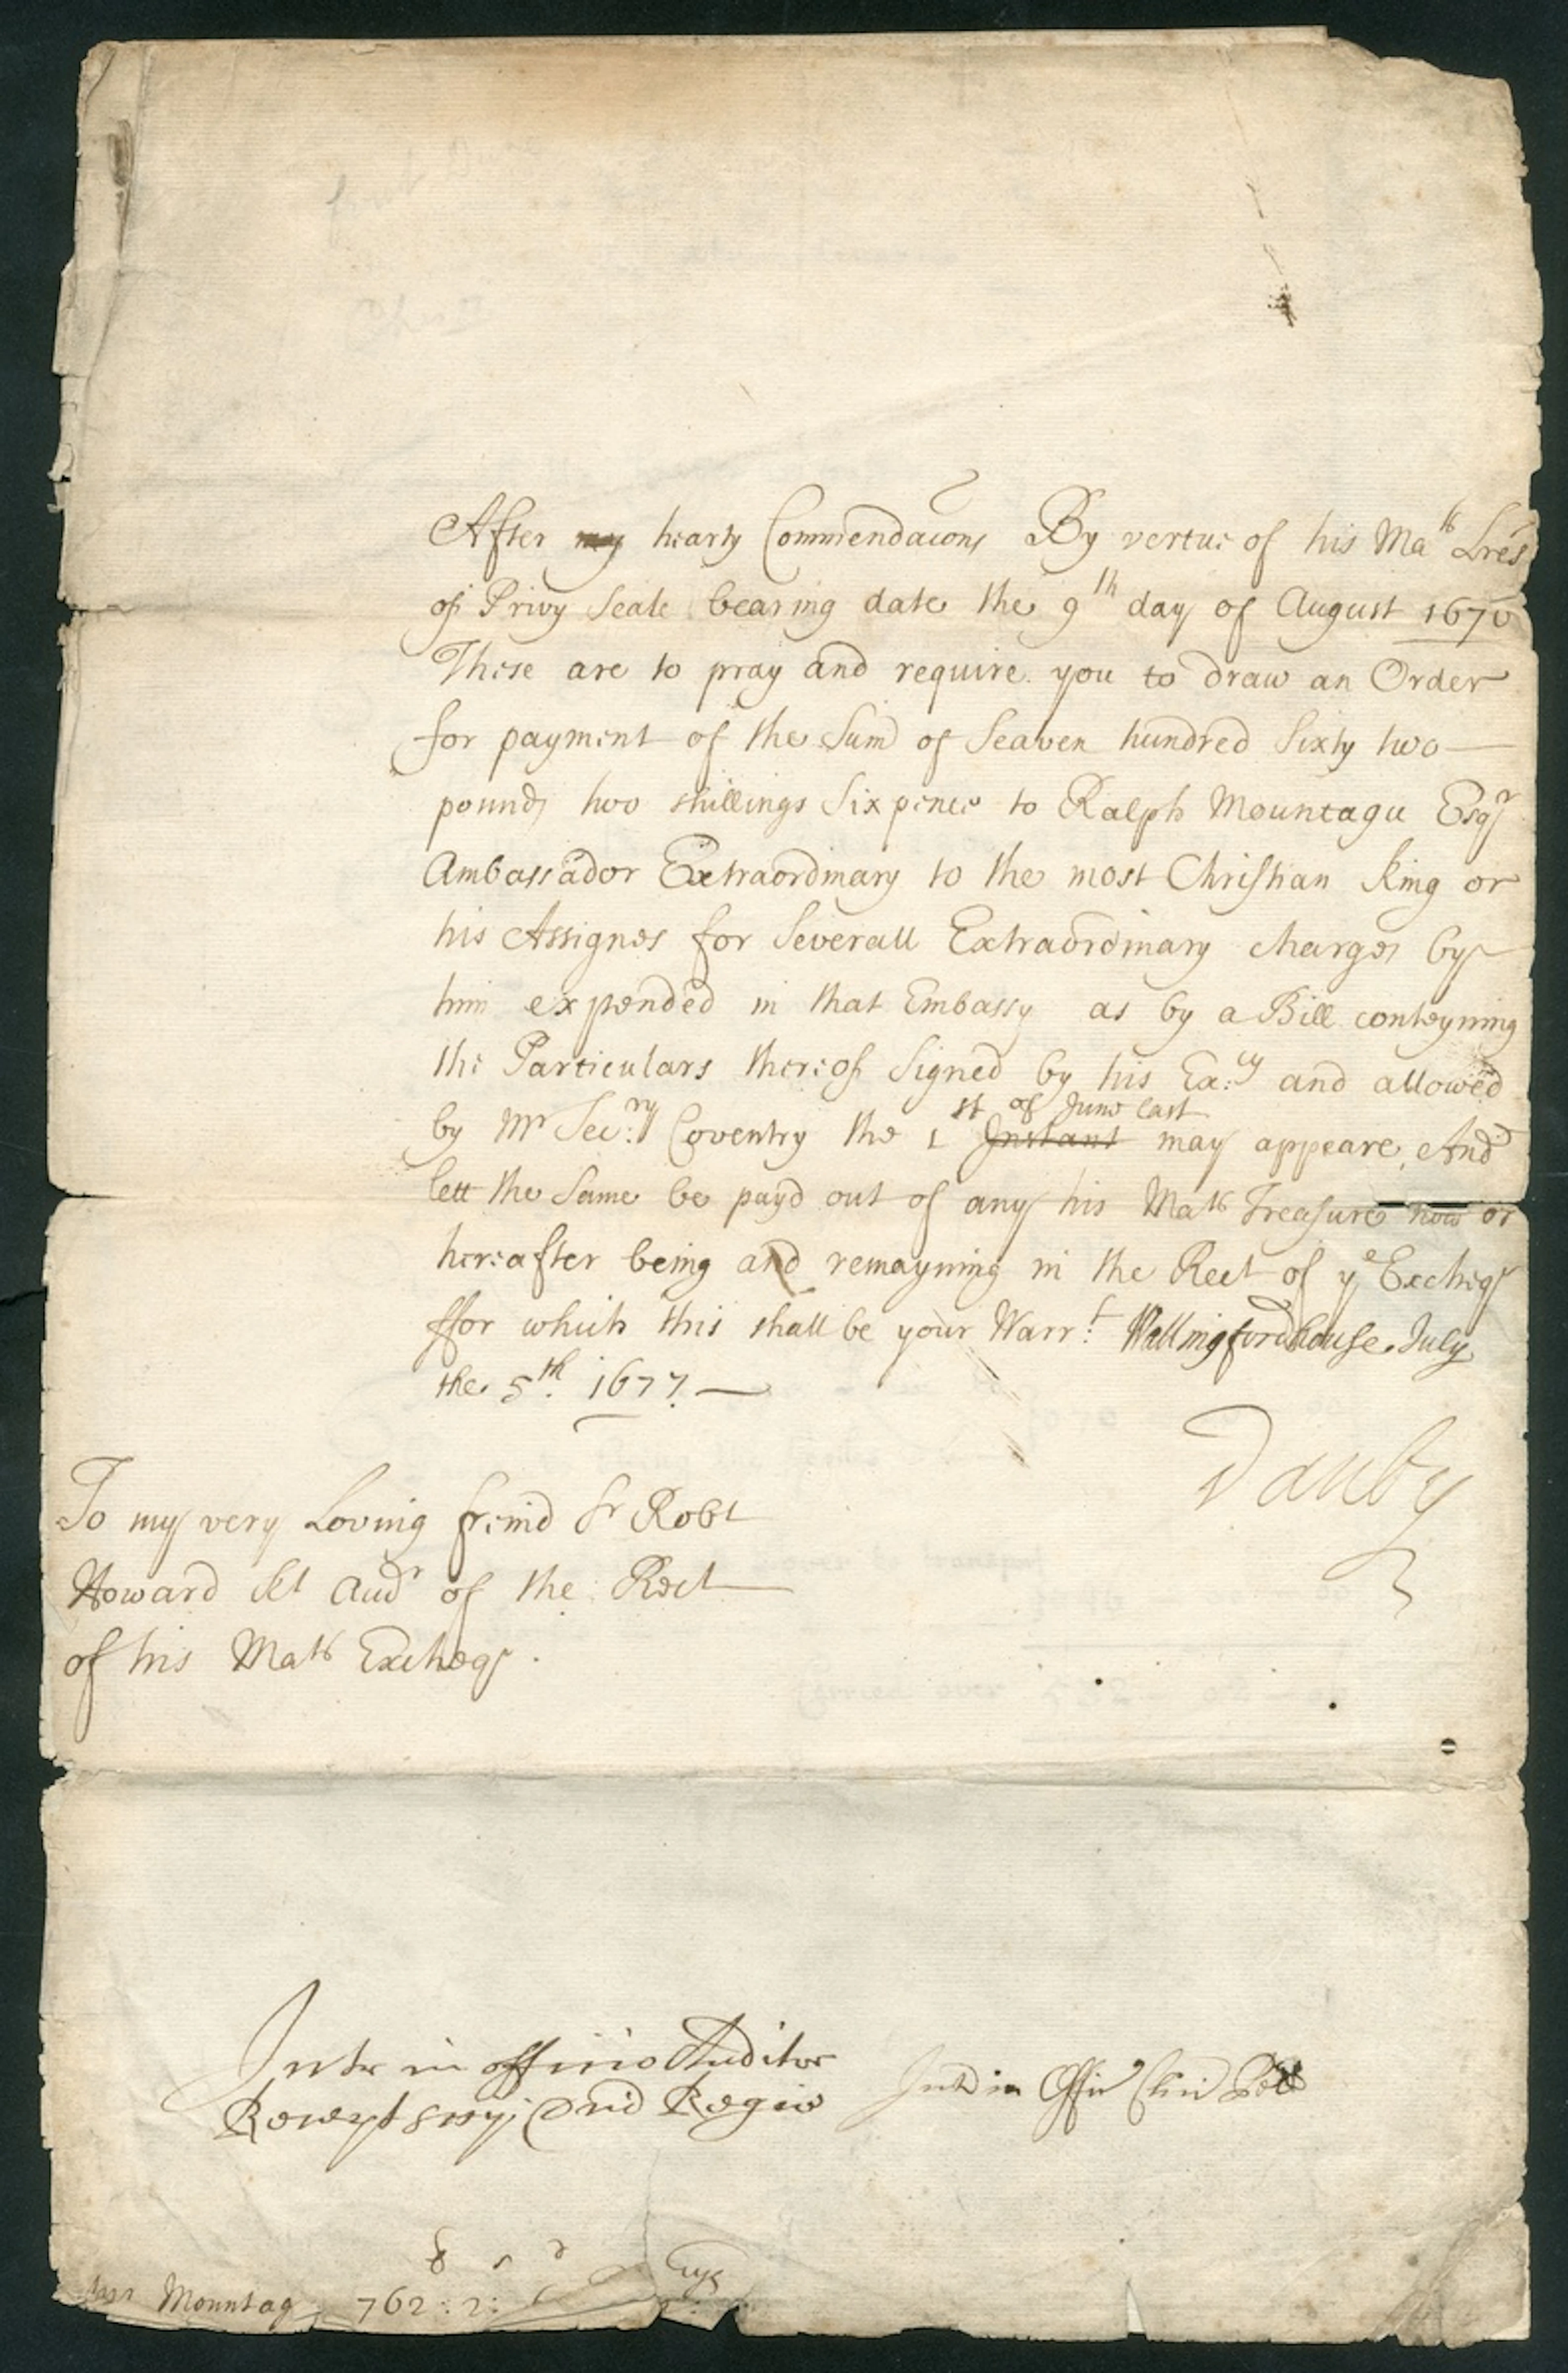 After my hearty Commendacons By vertue of his Mats Lres
of Privy Seale bearing date the 9th day of August 1670
These are to pray and require you to draw an Order
for payment of the Sum of Seaven hundred Sixty two
pounds two shillings Sixpence to Ralph Mountagu Esqr
Ambassador Extraordinary to the most Christian King or
his Assignes for Severall Extraordinary charges by
him expended in that Embassy as by a Bill conteyning
the Particulars thereof Signed by his Ex:cy and allowed
by Mr Sec:ry Coventry the 1st Instant of June last may appeare, And
lett the Same be payd out of any his Mats Treasure now or
hereafter being and remayning in the Rect of ye Excheqr
ffor which this shall be your Warr:t Wallingfordhouse July
the 5th. 1677.
Danby
To my very Loving freind Sr Robt
Howard Kt Audr of the Rect
of his Mats Excheqr.
Intr in officio Auditor
Recept Dni Regis
Intr in Offic Cleri Pell
Mountag 762 : 2 :